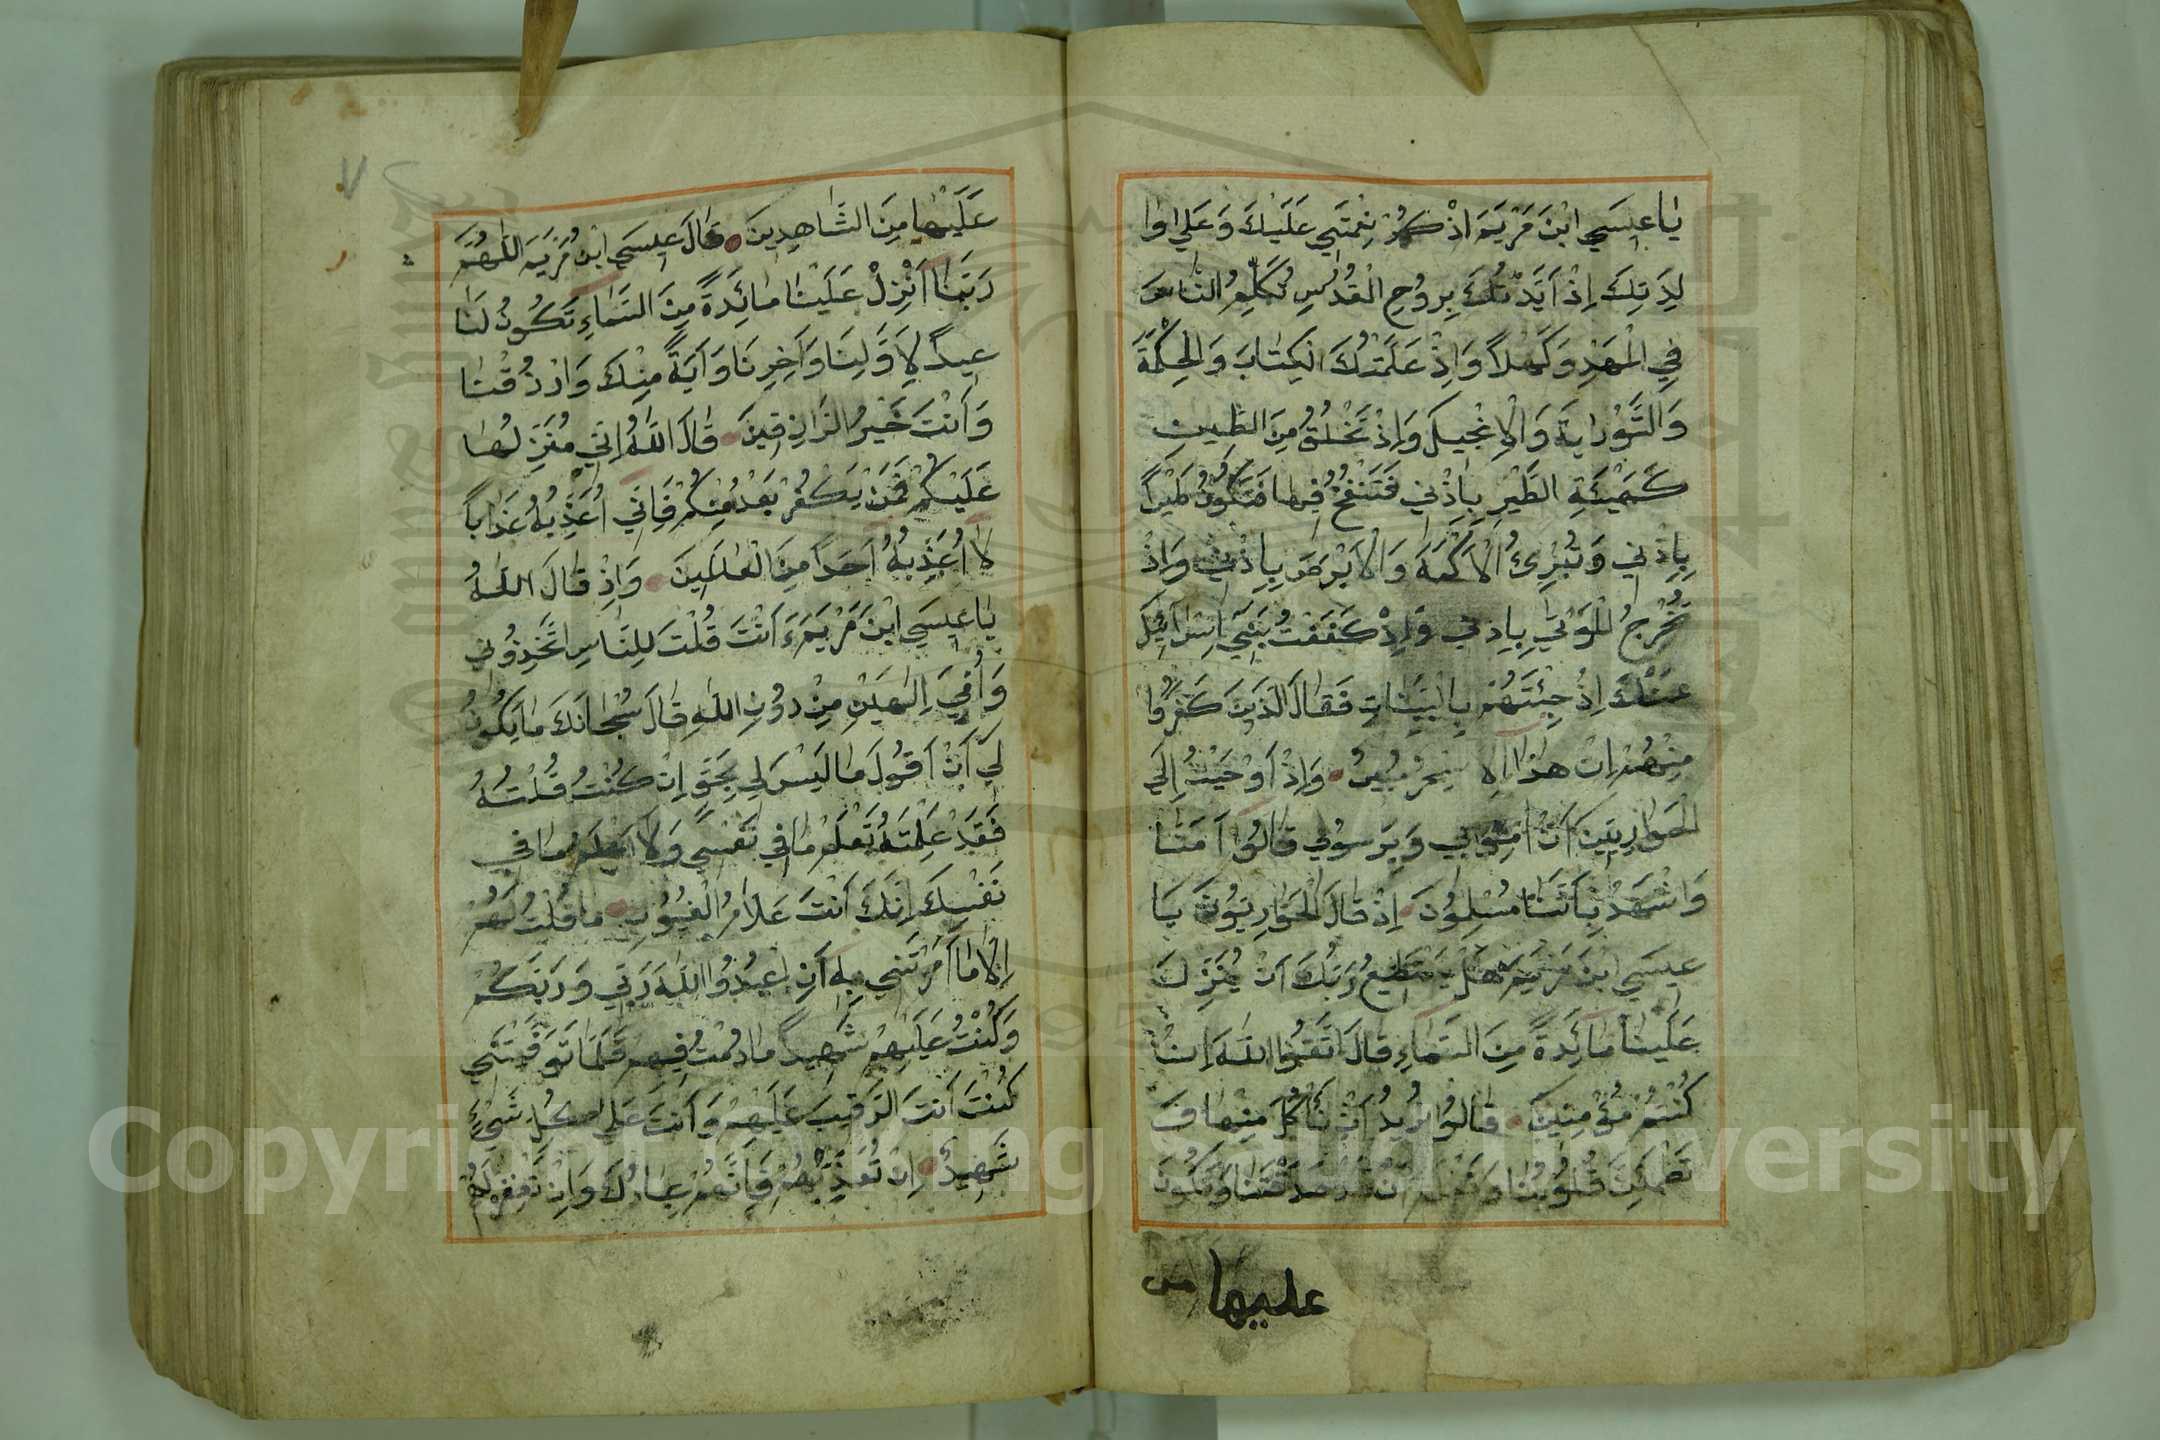 يَا عِيسَي ابْنَ مَرْيَمَ اذْكُرْ نِعْمَتِي عَلَيْكَ وَعَلٰي وَا
لِدَتِكَ اِذْ اَيَّدْتُكَ بِرُوحِ الْقُدُسِ تُكَلِّمُ النَّاسَ
فِي الْمَهْدِ وَكَهْلاً وَاِذْ عَلَّمْتُكَ الْكِتَابَ وَالْحِكْمَةَ
وَالتَّوْرَايةَ وَالْاِنْجِيلَ وَاِذْ تَخْلُقُ مِنَ الطِّينِ
كَهَيْئَةِ الطَّيْرِ بِاِذْنِي فَتَنْفُخُ فِيهَا فَتَكُونُ طَيْراً
بِاِذْنِي وَتُبْرِئُ الْاَكْمَهَ وَالْاَبْرَصَ بِاِذْنِي وَاِذْ
تُخْرِجُ الْمَوْتَي بِاِذْنِي وَاِذْ كَفَفْتُ بَنِي اِسْرَائِلَ
عَنْكَ اِذْ جِئْتَهُمْ بِالْبَيِّنَاتِ فَقَالَ الَّذِينَ كَفَرُوا
مِنْهُمْ اِنْ هٰذَا اِلا سِحْرٌ مُبِينٌ وَاِذْ اَوْحَيْتُ اِلَي
الْحَوَارِيِّينَ اَنْ اٰمِنُوا بِي وَبِرَسُولِي قَالُوا اٰمَنَّا
وَاشْهَدْ بِاَنَّنَا مُسْلِمُونَ اِذْ قَالَ الْحَوَارِيُّونَ يَا
عِيسَي ابْنَ مَرْيَمَ هَلْ يَسْتَطِيعُ رَبُّكَ اَنْ يُنَزِّلَ
عَلَيْنَا مَائِدَةً مِنَ السَّمَاءِ قَالَ اتَّقُوا اللّٰهَ اِنْ
كُنْتُمْ مُؤْمِنِينَ قَالُوا نُرِيدُ اَنْ نَاْكُلَ مِنْهَا وَ
تَطْمَئِنَّ قُلُوبُنَا وَنَعْلَمَ اَنْ قَدْ صَدَقْتَنَا وَنَكُونَ
عليها من
عَلَيْهَا مِنَ الشَّاهِدِينَ قَالَ عِيسَي ابْنُ مَرْيَمَ اللّٰهُمَّ
رَبَّنَا اَنْزِلْ عَلَيْنَا مَائِدَةً مِنَ السَّمَاءِ تَكُونُ لَنَا
عِيداً لِاَوَّلِنَا وَاٰخِرِنَا وَاٰيَةً مِنْكَ وَارْزُقْنَا
وَاَنْتَ خَيْرُ الرَّازِقِينَ قَالَ اللّٰهُ اِنِّي مُنَزِّلُهَا
عَلَيْكُمْ فَمَنْ يَكْفُرْ بَعْدُ مِنْكُمْ فَاِنِّي اُعَذِّبُهُ عَذَاباً
لَا اُعَذِّبُهُ اَحَداً مِنَ الْعَالَمِينَ وَاِذْ قَالَ اللّٰهُ
يَا عِيسَي ابْنَ مَرْيَمَ ءَاَنْتَ قُلْتَ لِلنَّاسِ اتَّخِذُونِي
وَاُمِّيَ اِلٰهَيْنِ مِنْ دُونِ اللّٰهِ قَالَ سُبْحَانَكَ مَا يَكُونُ
لِي اَنْ اَقُولَ مَا لَيْسَ لِي بِحَقٍّ اِنْ كُنْتُ قُلْتُهُ
فَقَدْ عَلِمْتَهُ تَعْلَمُ مَا فِي نَفْسِي وَلَا اَعْلَمُ مَا فِي
نَفْسِكَ اِنَّكَ اَنْتَ عَلَّامُ الْغُيُوبِ مَا قُلْتُ لَهُمْ
اِلَّا مَا اَمَرْتَنِي بِهِ اَنِ اعْبُدُوا اللّٰهَ رَبِّي وَرَبَّكُمْ
وَكُنْتُ عَلَيْهِمْ شَهِيداً مَا دُمْتُ فِيهِمْ فَلَمَّا تَوَفَّيْتَنِي
كُنْتَ اَنْتَ الرَّقِيبَ عَلَيْهِمْ وَاَنْتَ عَلٰي كُلِّ شَيْءٍ
شَهِيدٌ اِنْ تُعَذِّبْهُمْ فَاِنَّهُمْ عِبَادُكَ وَاِنْ تَغْفِرْ لَهُمْ
٧
Copyright © King Saud University